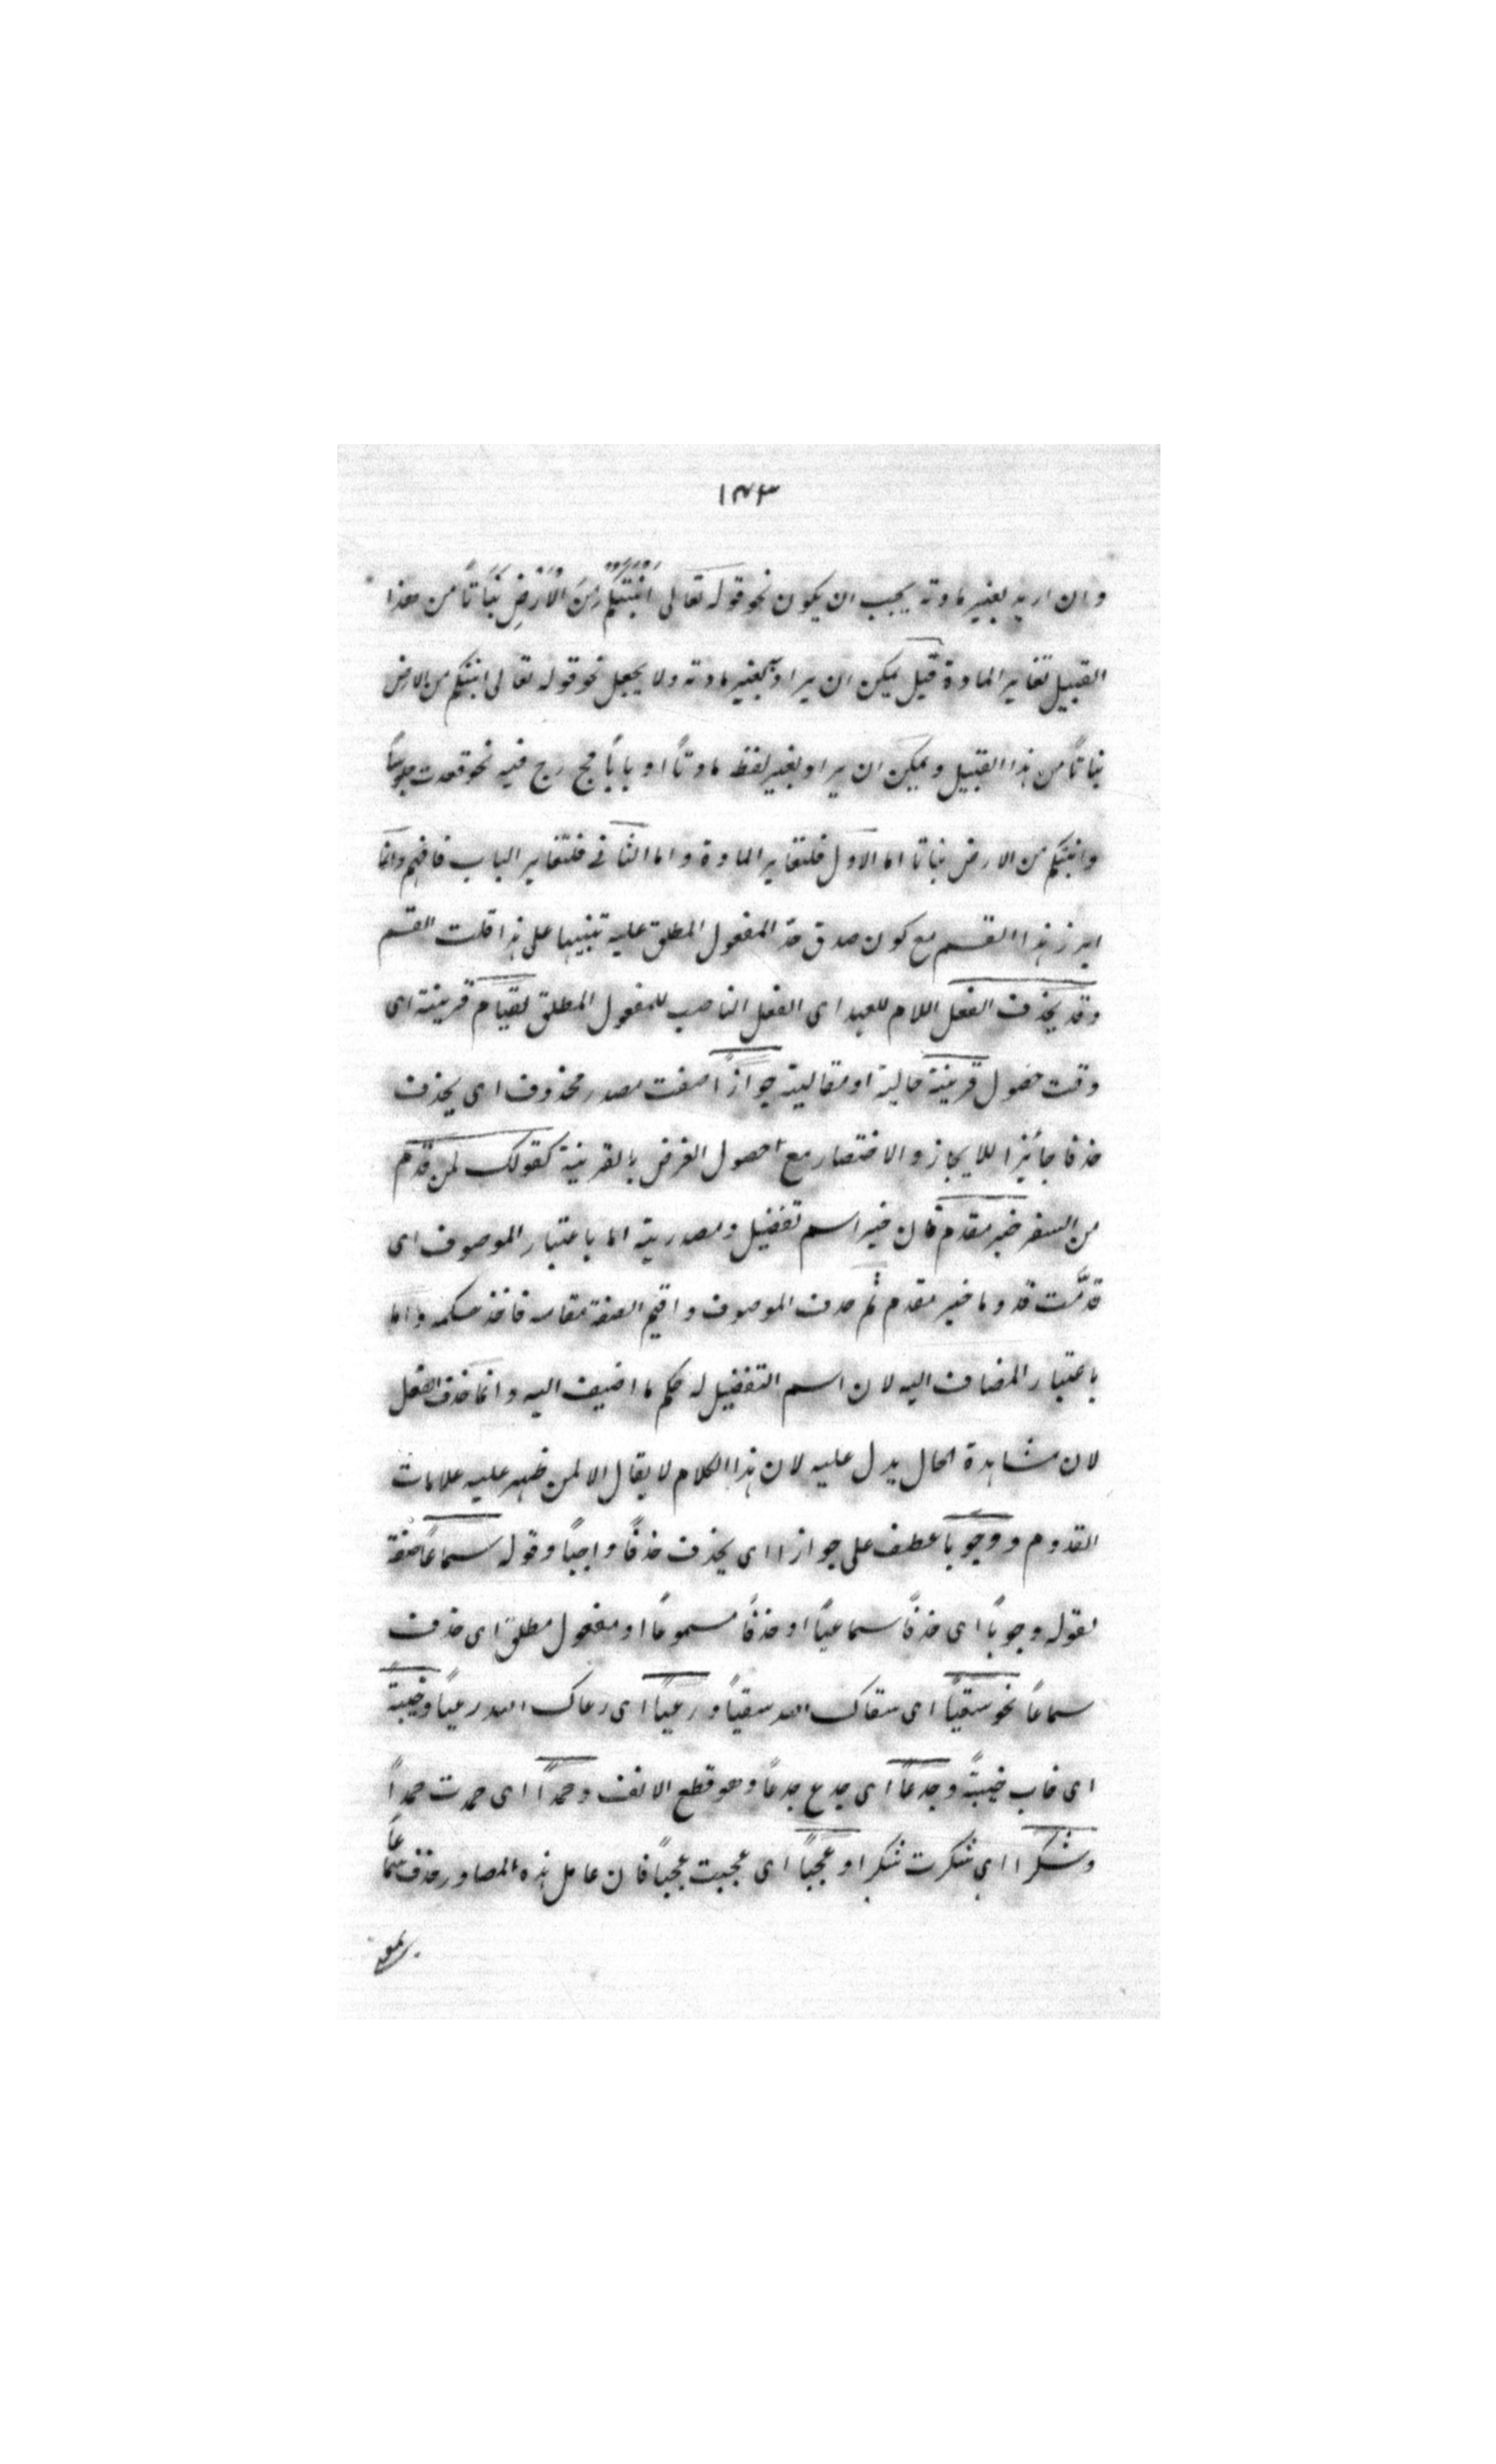 ١٤٣
وان اريد بغير مادته يجب ان يكون نحو قوله تعالى اَنْبَتَكُمْ مِنَ الْاَرْضِ نَبَاتًا من هذا
القبيل تغاير المادة قيل يمكن ان يراد بغير مادته ولا يجعل نحو قوله تعالى انبتكم من الارض
نباتاً من هذا القبيل ويمكن ان يراد بغير لفظه مادتاً او باباً فيه نحو قعدت جلوساً
وانبتكم من الارض نباتا اما الاول فلتغاير المادة واما الثانى فلتغاير الباب فافهم وانما
ابرز هذا القسم مع كون صدق حد المفعول المطلق عليه تنبيها على هذا قلت القسم
وقد يحذف الفعل اللام للعهد اى الفعل الناصب للمفعول المطلق لقيام قرينة اى
وقت حصول قرينة حالية او مقالية جوازاً صفت مصدر محذوف اى يحذف
حذفا جائزا للايجاز والاختصار مع حصول الغرض بالقرينة كقولك لمن قدم
من السفر خير مقدم فان خير اسم تفضيل ومصدرية اما باعتبار الموصوف اى
قدمت قدوما خير مقدم ثم حذف الموصوف واقيم الصفة مقامه فاخذ حكمه واما
باعتبار المضاف اليه لان اسم التفضيل له حكم ما اضيف اليه وانما حذف الفعل
لان مشاهدة الحال يدل عليه لان هذا الكلام لا يقال الا لمن ظهر عليه علامات
القدوم ووجوبا عطف على جوازا اى يحذف حذفاً واجباً وقوله سماعاً صفة
لقوله وجوباً اى حذفاً سماعياً او حذفاً مسموعاً او مفعول مطلق اى حذف
سماعاً نحو سقياً اى سقاك الله سقياً ورعياً اى رعاك الله رعياً وخيبة
اى خاب خيبةً وجدعاً اى جدع جدعاً وهو قطع الانف وحمداً اى حمدت حمداً
وشكرا اى شكرت شكرا وعجباً اى عجبت عجباً فان عامل هذه المصادر حذف سماعاً